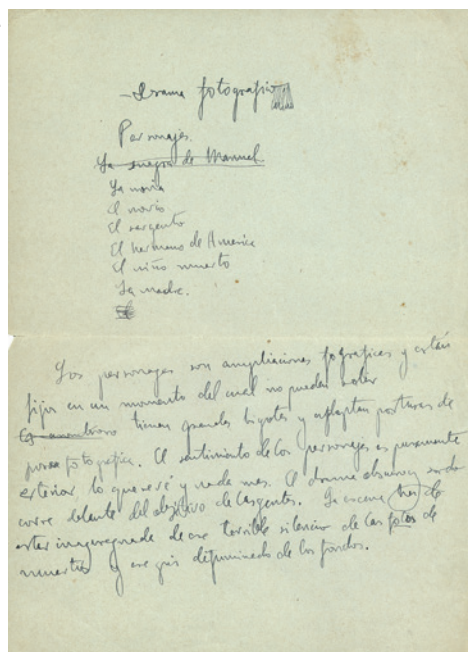 - Drama fotografico
Personajes.
La suegra de Manuel
La novia
El novio
El sargento
El hermano de America
El niño muerto
La madre.
Los personajes son ampliaciones fograficas y están
fijos en un momento del cual no pueden salir
tienen grandes bigotes y adoptan posturas de
fotografica. El sentimiento de los personajes es puramente
exterior, lo que se vé y nada mas. El drama obscuro y sordo
corre delante del objetivo de las gentes. La escena ha de
estar impregnada de ese terrible silencio de las fotos de
muertos y ese gris difuminado de los fondos.